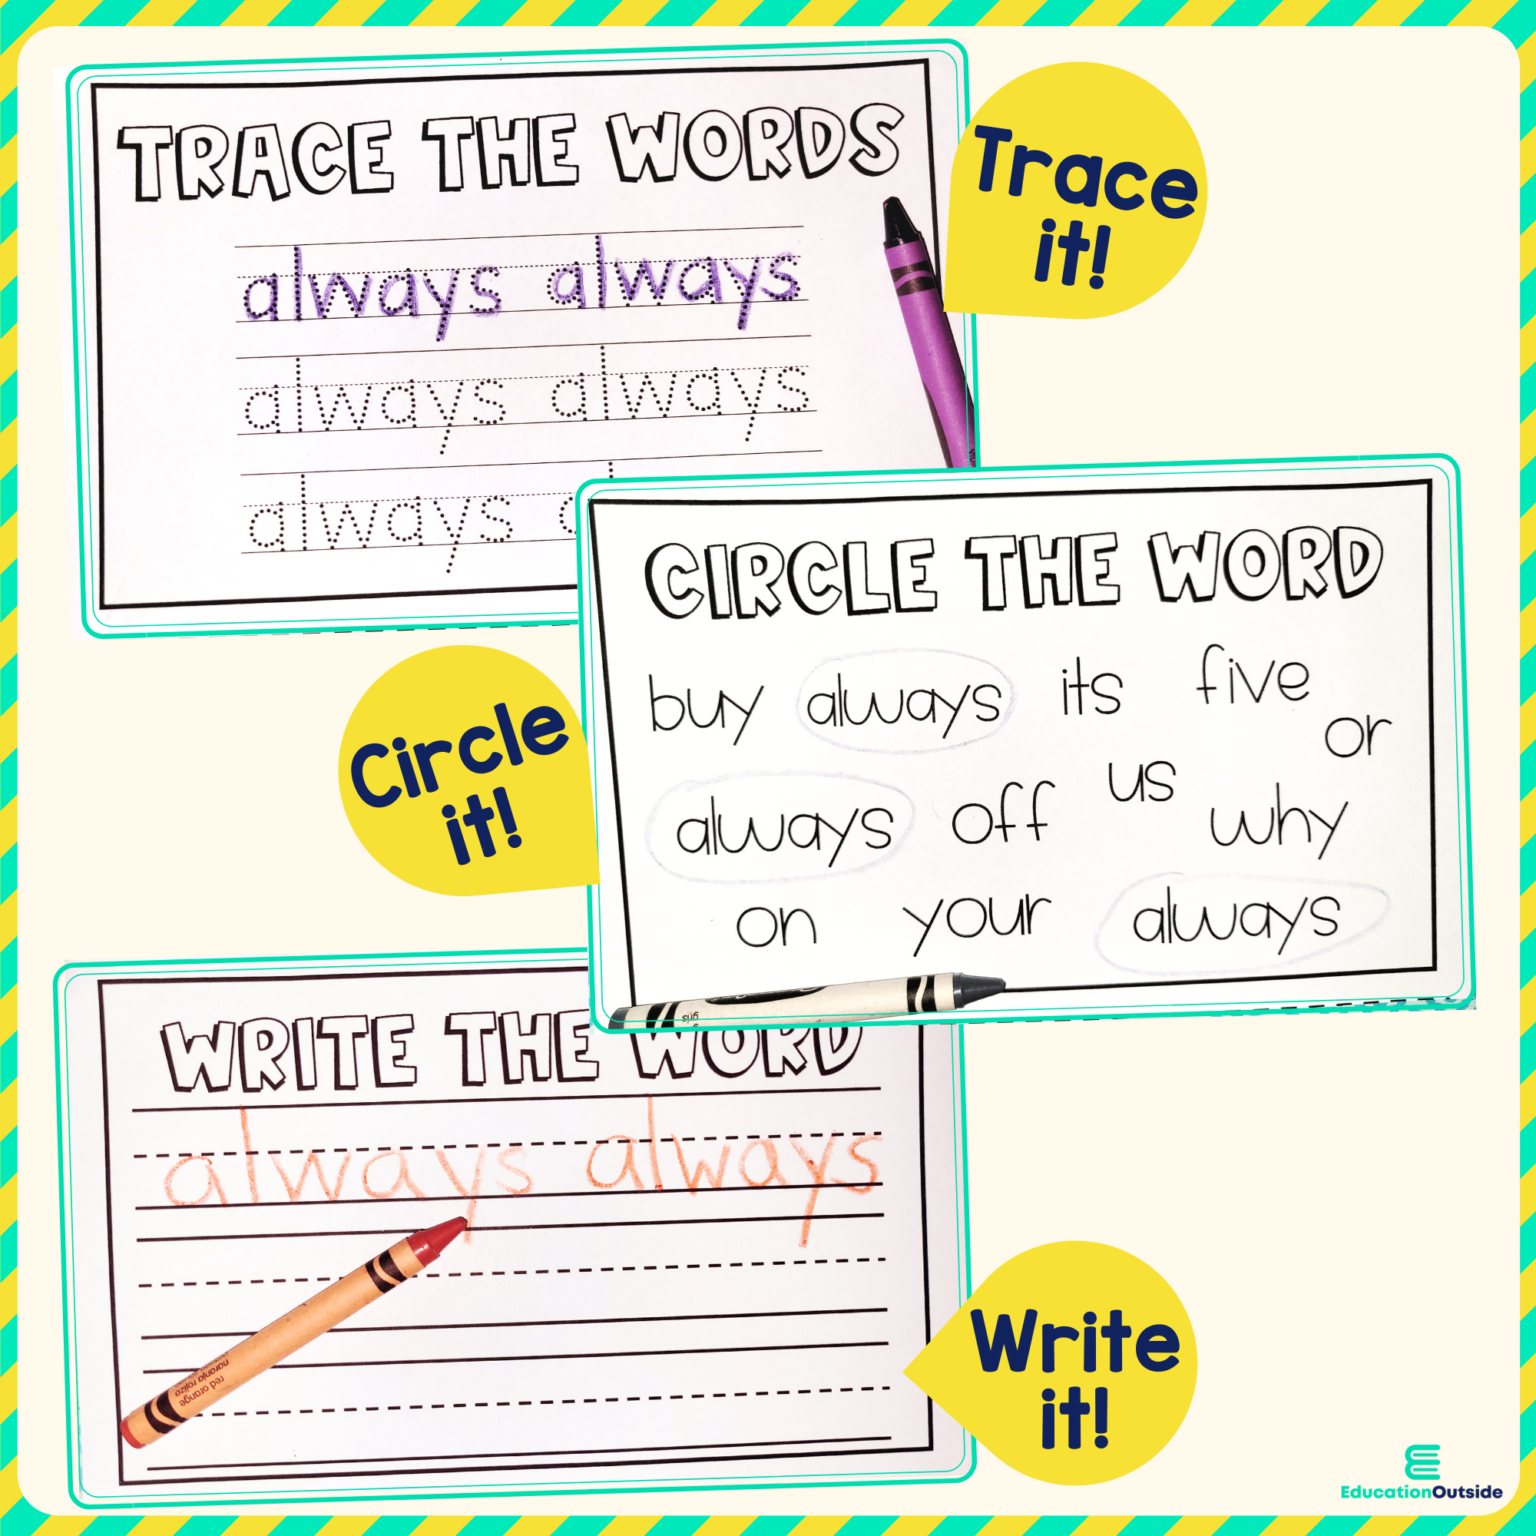 TRACE THE WORDS
always always
always always
always
Trace
it!
CIRCLE THE WORD
buy always its five
or
always off us why
on your always
Circle
it!
WRITE THE WORD
always always
red orange
naranja rojizo
gris
Write
it!
EducationOutside